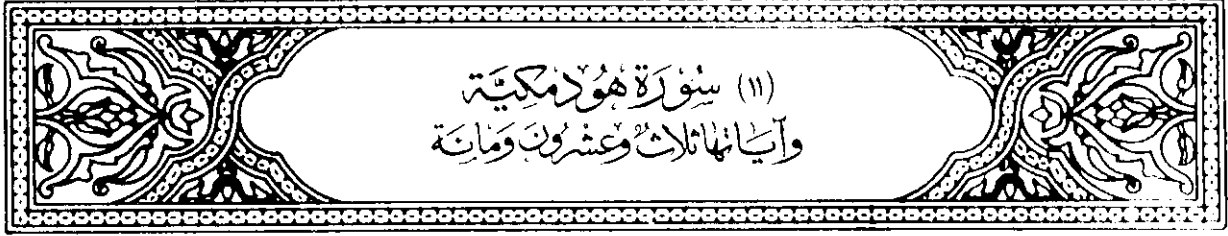 (١١) سُوْرَة هُوْد مَكيَّة
وآيَاتها ثلاثٌ وَعشْرُون وَمائة